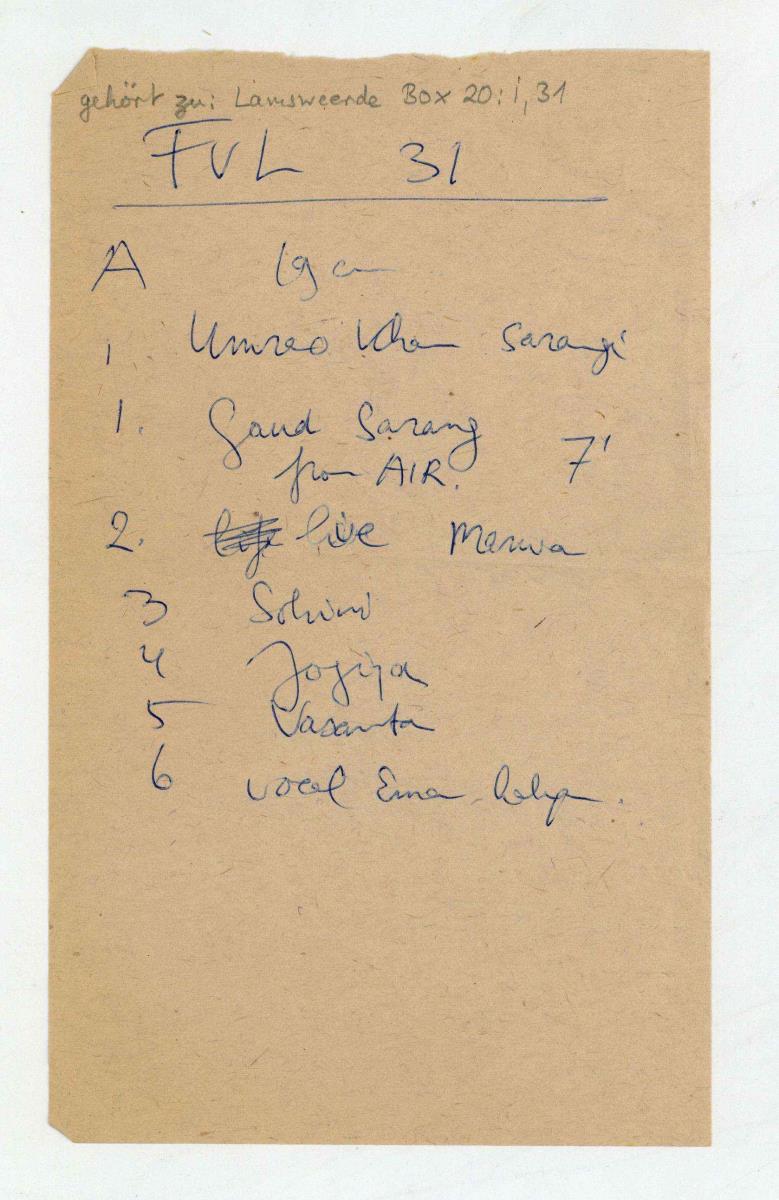 gehört zu: Lamsweerde Box 20: i, 31
FVL 31
A 19 cm
1 Umrao Khan Sarangi
1. Gaud Sarang
from AIR. 7'
2. live Marwa
3 Sohini
4 Jogiya
5 Vasanta
6 vocal Eman Kalyan.